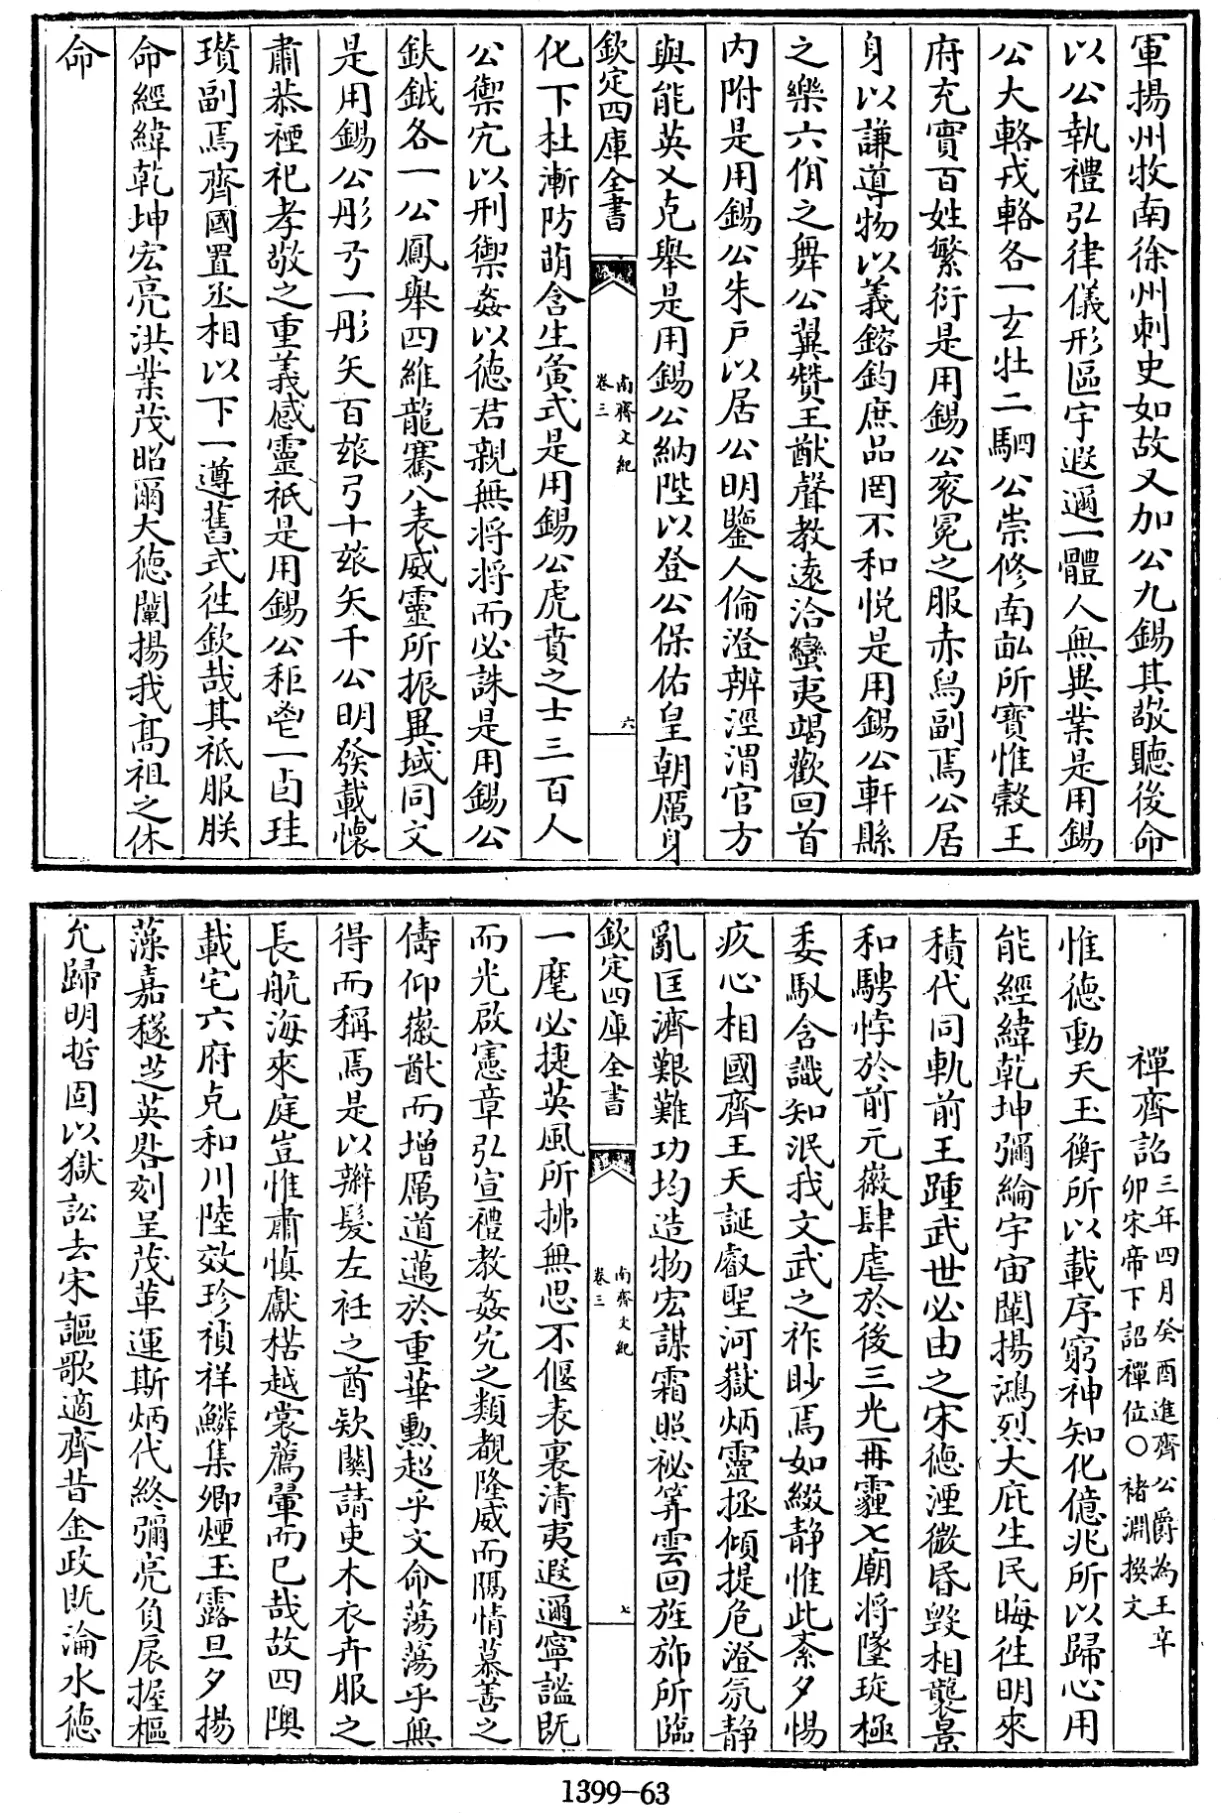 軍揚州牧南徐州刺史如故又加公九錫其敬聽後命
以公執禮弘律儀形區宇遐邇一體人無異業是用錫
公大輅戎輅各一玄牡二駟公崇修南畝所寶惟穀王
府充實百姓繁衍是用錫公衮冕之服赤舄副焉公居
身以謙導物以義鎔鈞庶品罔不和悦是用錫公軒縣
之樂六佾之舞公翼贊王猷聲教遠洽蠻夷竭歡回首
内附是用錫公朱戶以居公明鑒人倫澄辨涇渭官方
與能英乂克舉是用錫公納陛以登公保佑皇朝厲身
欽定四庫全書
南齊文紀
卷三
六
化下杜漸防萌含生寅式是用錫公虎賁之士三百人
公禦宄以刑禦姦以德君親無將將而必誅是用錫公
鈇鉞各一公鳳舉四維龍騫八表威靈所振異域同文
是用錫公彤弓一彤矢百玈弓十玈矢千公明發載懷
肅恭禋祀孝敬之重義感靈祇是用錫公秬鬯一卣珪
瓚副焉齊國置丞相以下一遵舊式往欽哉其祗服朕
命經緯乾坤宏亮洪業茂昭爾大德闡揚我高祖之休
命
禪齊詔三年四月癸酉進齊公爵為王辛
卯宋帝下詔禪位○褚淵撰文
惟德動天玉衡所以載序窮神知化億兆所以歸心用
能經緯乾坤彌綸宇宙闡揚鴻烈大庇生民晦往明來
積代同軌前王踵武世必由之宋德湮微昏毀相襲景
和騁悖於前元徽肆虐於後三光再霾七廟將墜璇極
委馭含識知泯我文武之祚眇焉如綴静惟此紊夕惕
疚心相國齊王天誕叡聖河嶽炳靈拯傾提危澄氛静
亂匡濟艱難功均造物宏謀霜照祕筭雲回旌斾所臨
欽定四庫全書
南齊文紀
卷三
七
一麾必捷英風所拂無思不偃表裏清夷遐邇寧謐既
而光啟憲章弘宣禮教姦宄之類覩隆威而隔情慕善之
儔仰徽猷而增厲道邁於重華勲超乎文命蕩蕩乎無
得而稱焉是以辮髮左衽之酋欵關請吏木衣卉服之
長航海來庭豈惟肅慎獻楛越裳薦翬而已哉故四隩
載宅六府克和川陸效珍禎祥鱗集卿煙玉露旦夕揚
藻嘉穟芝英晷刻呈茂革運斯炳代終彌亮負扆握樞
允歸明哲固以獄訟去宋謳歌適齊昔金政既淪水德
1399-63